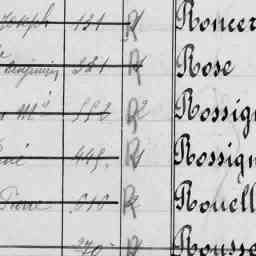 Joseph 121 R1 Roncer
Benjamin 321 R1 Rose
Mel 553 R2 Rossig
né 445 R1 Rossign
Pierre 616 R2 Rouell
270 R1 Rousse